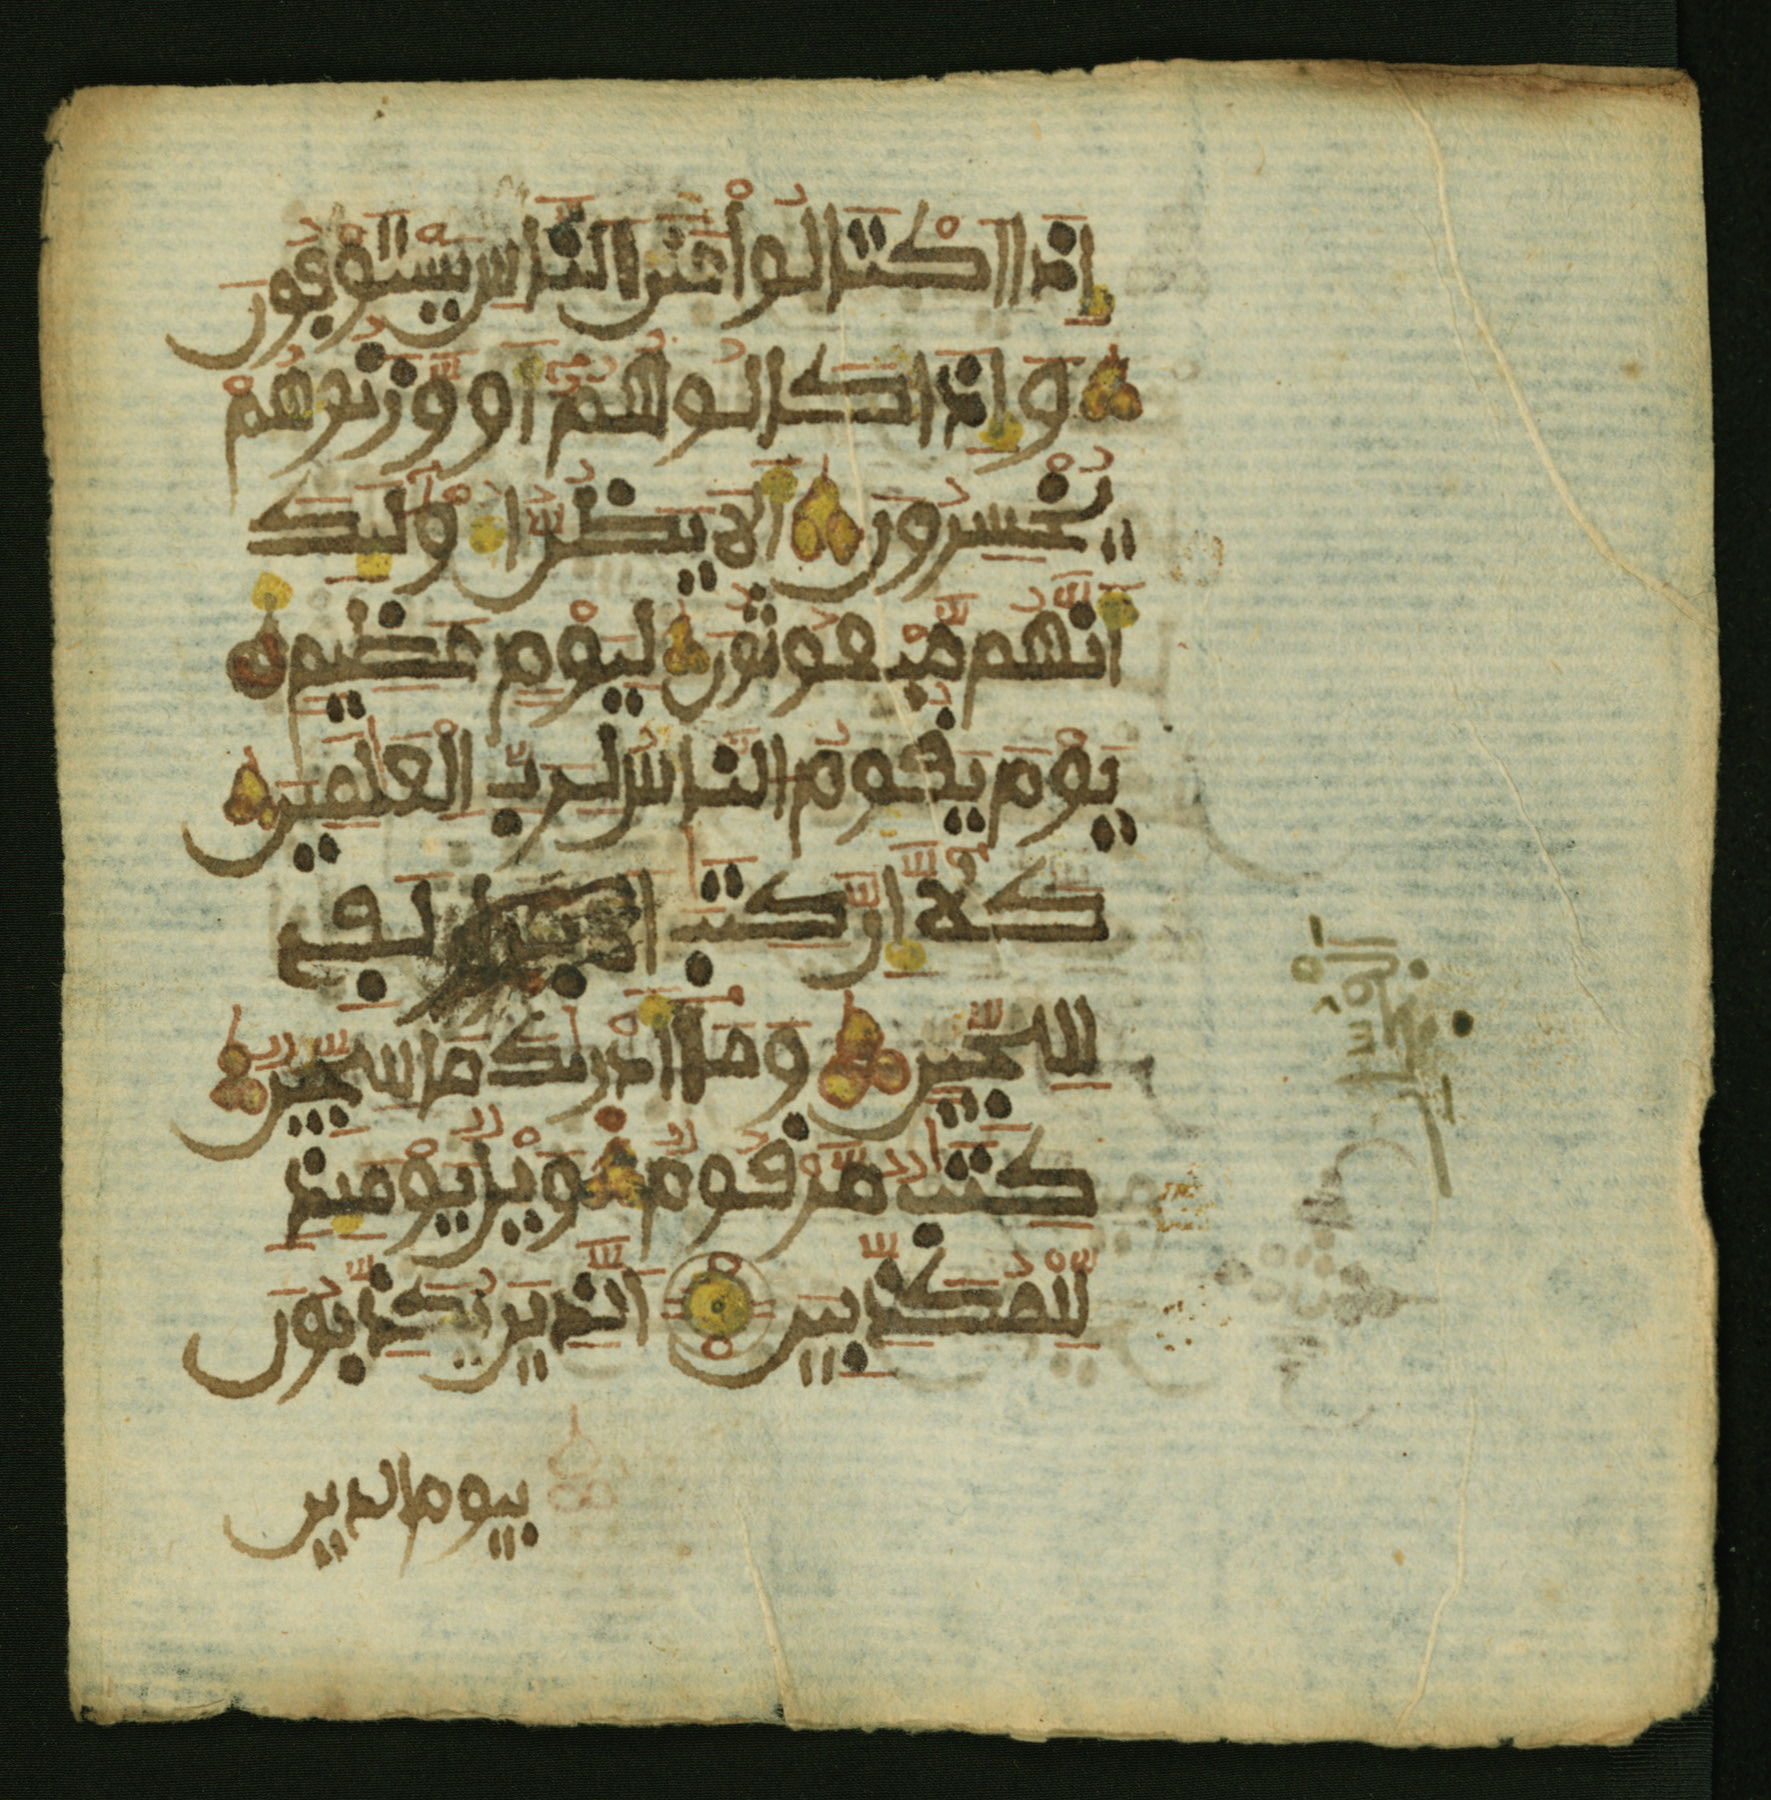 اِذَا اَكْتَالُوا عَلَى اَلنَّاسِ يَسْتَوْفُونَ
وَاِذَا كَالُوهُمُ أَو وَّزَنُوهُمْ
يُخْسِرُونَ أَلَا يَظُنُّ أُوْلَٰئِكَ
أَنَّهُم مَّبْعُوثُونَ لِيَوْمٍ عَظِيمٍ
يَوْمَ يَقُومُ اَلنَّاسُ لِرَبِّ اِلْعَٰلَمِينَ
كَلَّا إِنَّ كِتَٰبَ لَفِي
سِجِّينٍ وَمَا أَدْرَيٰكَ مَا سِجِّينٌ
كِتَٰبٌ مَّرْقُومٌ وَيْلٌ يَوْمَئِذٍ
لِّلْمُكَذِّبِينَ اَلَّذِينَ يُكَذِّبُونَ
بيوم الدين